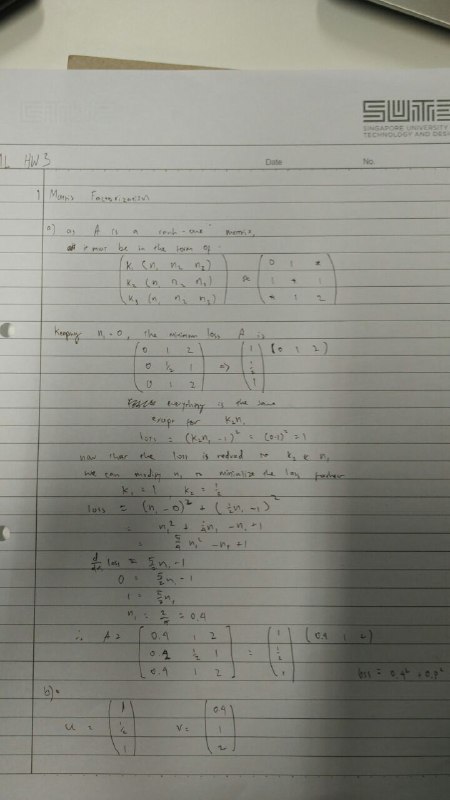 SUTD
SINGAPORE UNIVERSITY
TECHNOLOGY AND DES
ML HW 3
Date No.
1 Matrix Factorization
a) as A is a rank-one matrix,
it must be in the form of:
( k₁ (n₁ n₂ n₃) ) ≈ ( 0 1 * )
( k₂ (n₁ n₂ n₃) ) ( 1 * 1 )
( k₃ (n₁ n₂ n₃) ) ( * 1 2 )
Keeping n₁ = 0, the minimum loss A is
( 0 1 2 ) ⇒ ( 1 ) (0 1 2)
( 0 ½ 1 ) ( ½ )
( 0 1 2 ) ( 1 )
everything is the same
except for k₂n₁
loss = (k₂n₁ - 1)² = (0-1)² = 1
now that the loss is reduced to k₂ & n₁
we can modify n₁ to minimize the loss further
k₁ = 1 k₂ = ½
loss = (n₁ - 0)² + (½n₁ - 1)²
= n₁² + ¼n₁ - n₁ + 1
= 5/4 n₁² - n₁ + 1
d/dn₁ loss = 5/2 n₁ - 1
0 = 5/2 n₁ - 1
1 = 5/2 n₁
n₁ = 2/5 = 0.4
∴ A = [ 0.4 1 2 ] = ( 1 ) (0.4 1 2)
[ 0.2 ½ 1 ] ( ½ )
[ 0.4 1 2 ] ( 1 )
loss = 0.4² + 0.8²
b)
U = ( 1 ) V = ( 0.4 )
( ½ ) ( 1 )
( 1 ) ( 2 )